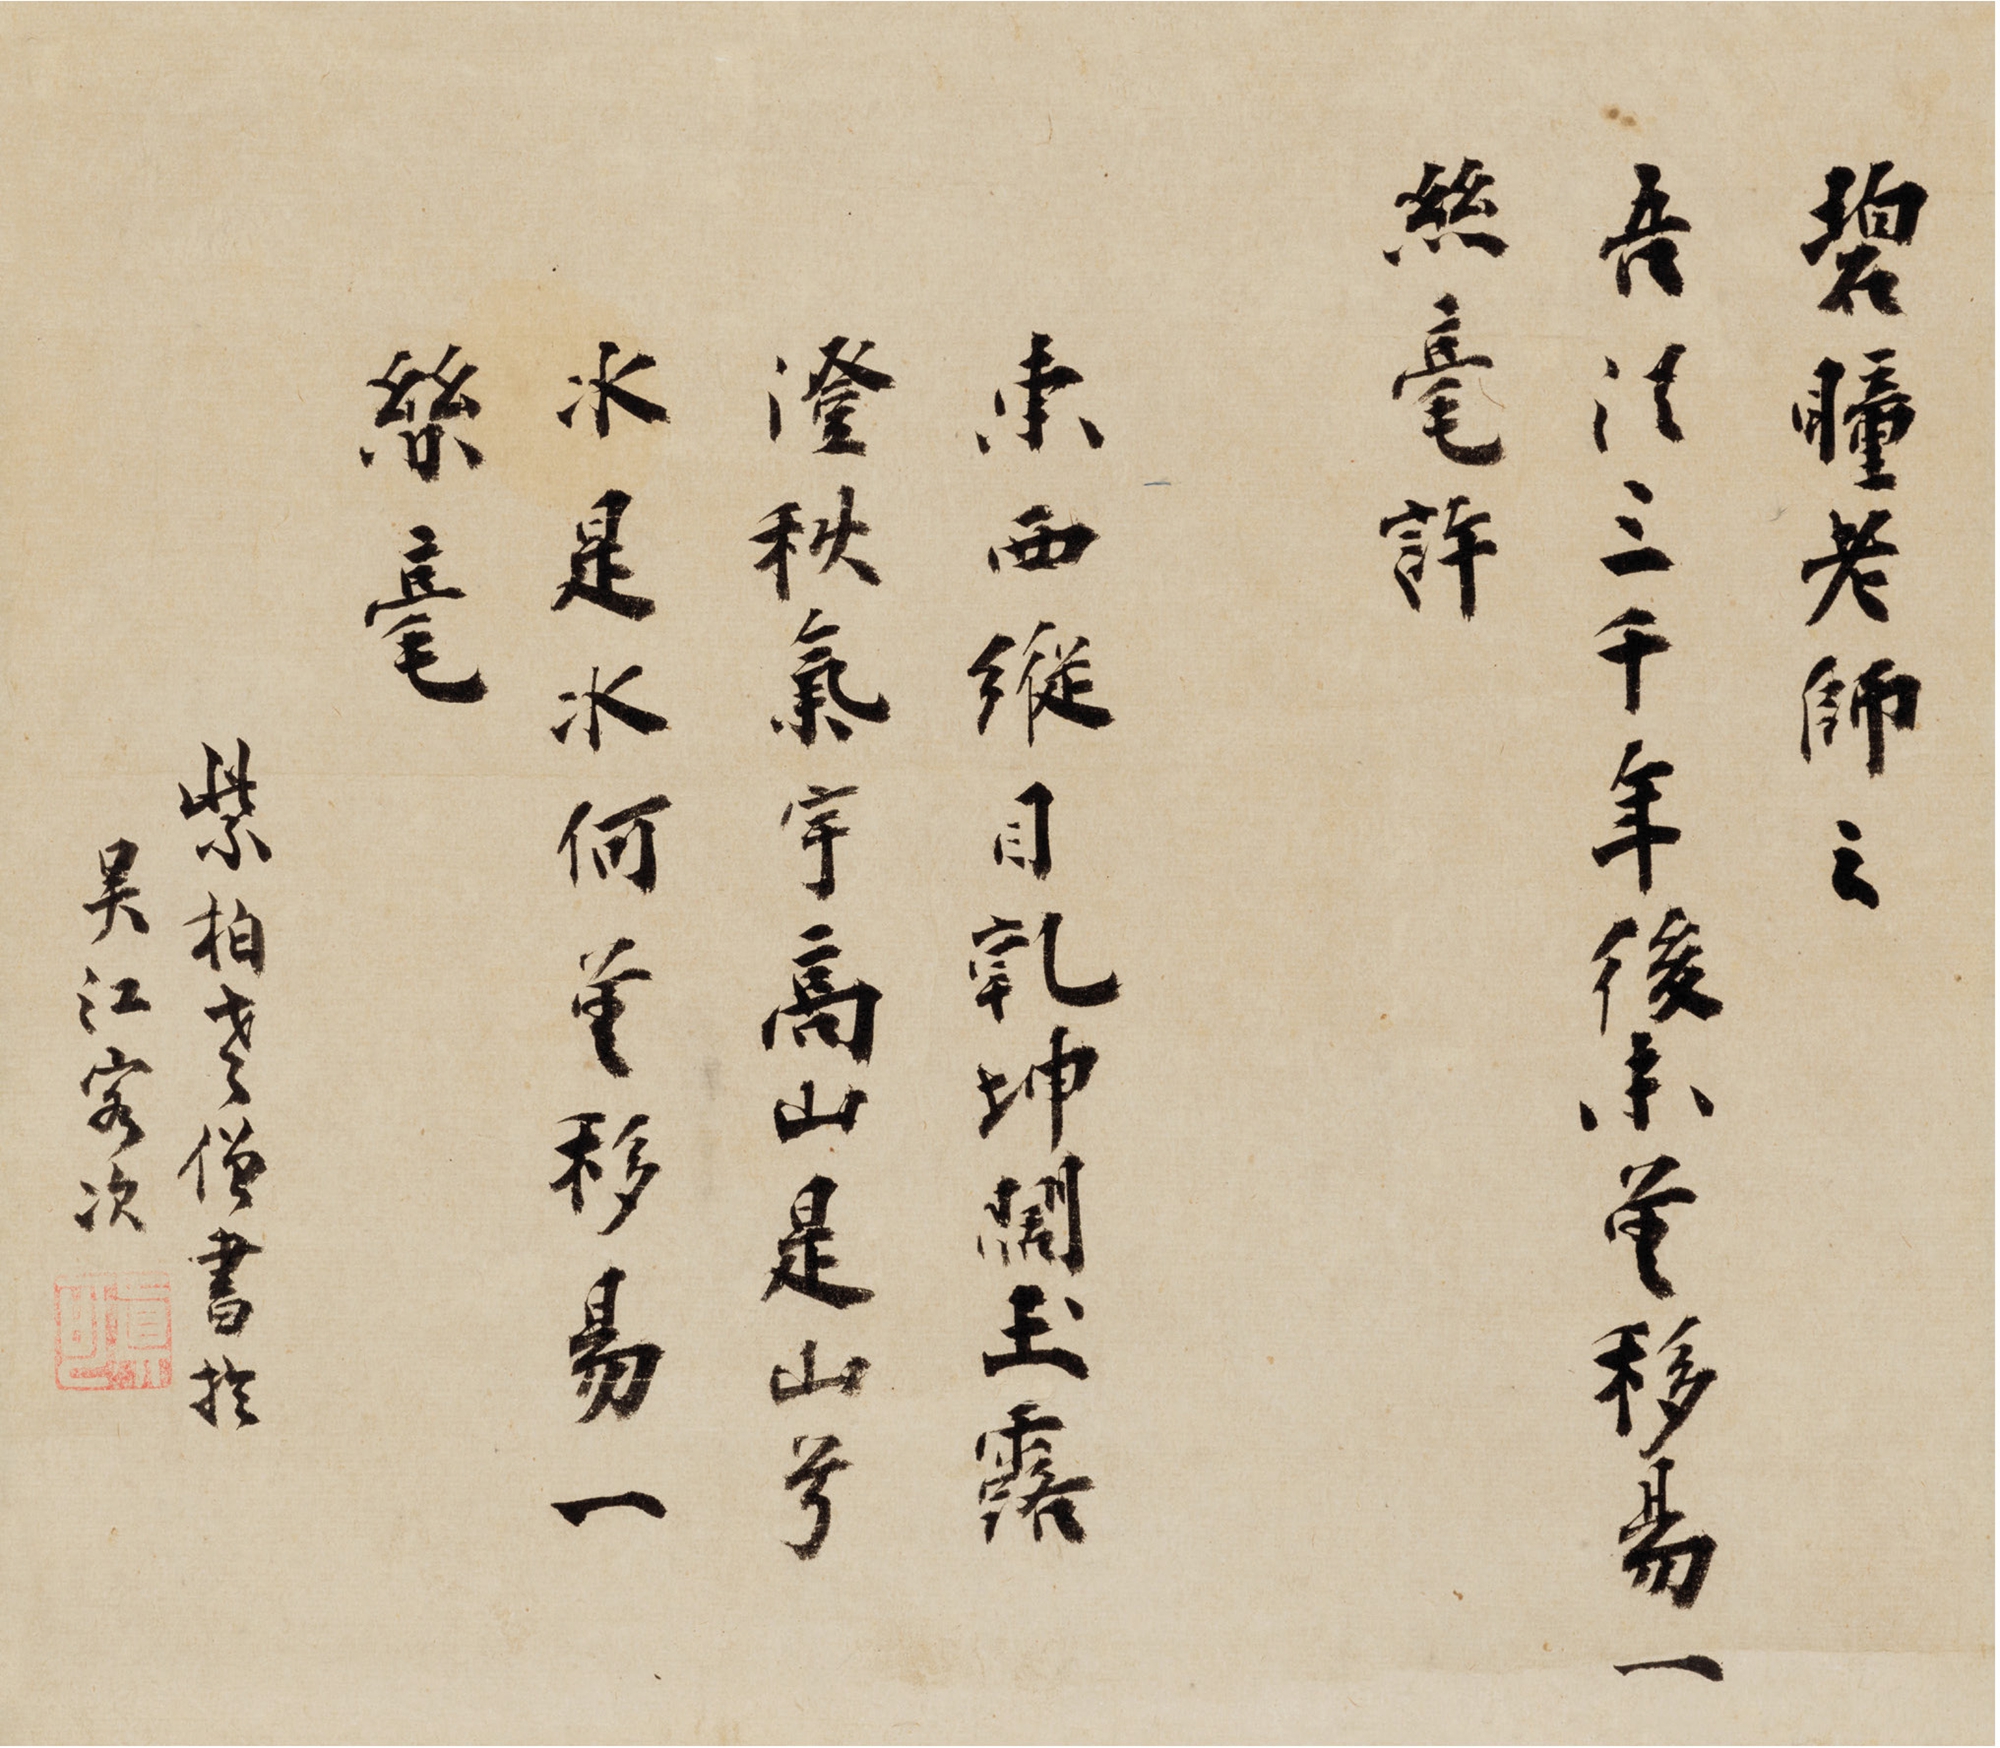 碧瞳老師云
吾法三千年後亦莫移易一
絲毫許
東西縱目乾坤闊玉露
澄秋氣宇高山是山兮
水是水何莫移易一
絲毫
紫柏老僧書於
吳江客次